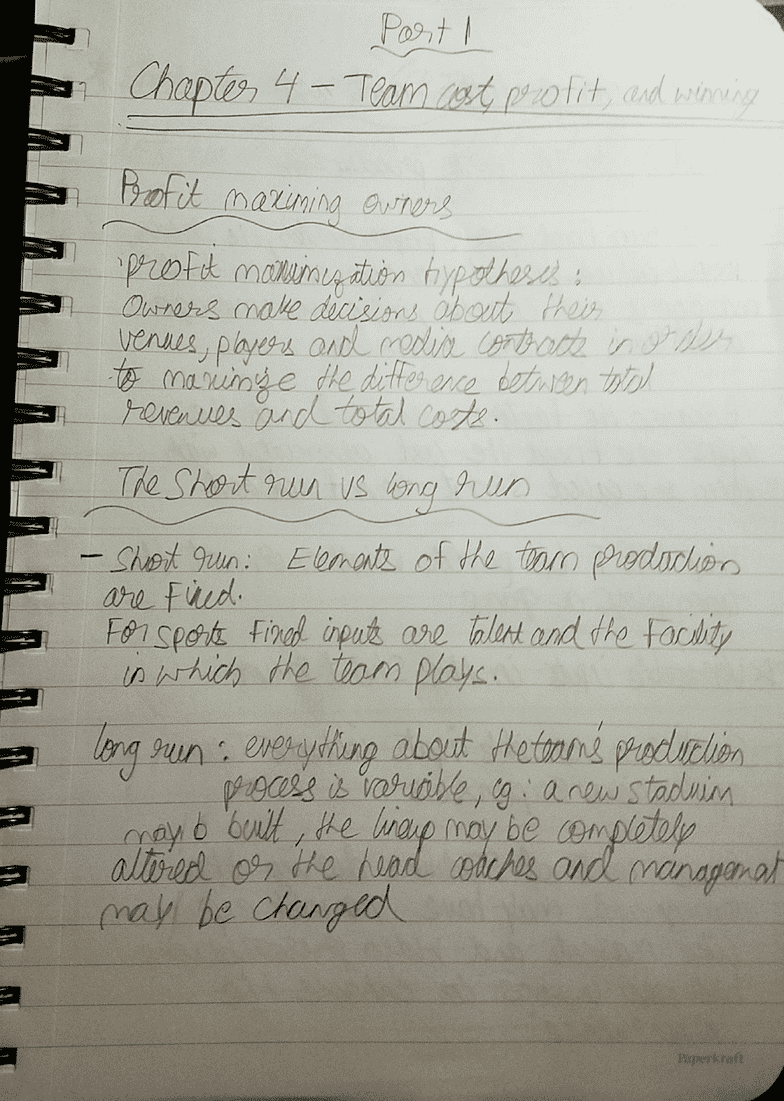 Part 1
Chapter 4 – Team cost, profit, and winning
Profit maximing owners
profit maximization hypothesis :
Owners make decisions about their
venues, players and media contracts in order
to maximize the difference between total
revenues and total costs.
The Short run vs long run
– Short run: Elements of the team production
are Fixed.
For sports fixed inputs are talent and the facility
in which the team plays.
long run : everything about the team's production
process is variable, eg : a new staduim
may b built, the lineup may be completely
altered or the head coaches and managemat
may be changed
Paperkraft